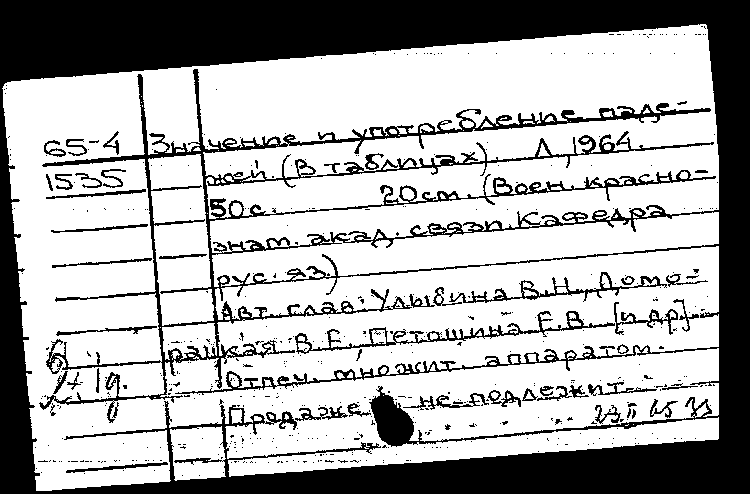 65-4 Значение и употребление паде-
1535 жей. (В таблицах). Л., 1964.
50с. 20см. (Воен. красно-
знам. акад. связи. Кафедра
рус. яз.)
Авт. глав: Улыбина В.Н., Домо-
рацкая В.Е., Петошина Е.В. [и др].
Отпеч. множит. аппаратом.
Продаже не подлежит